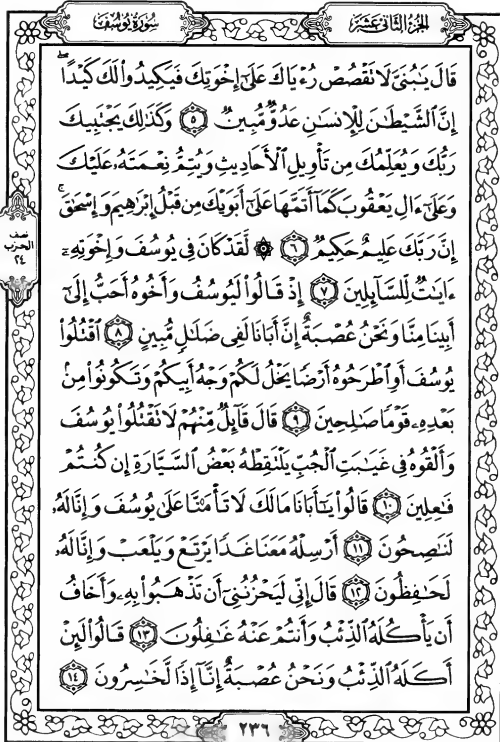 سُورَةُ يُوسُفَ
الجُزءُ الثَّانِي عَشَرَ
قَالَ يَـٰبُنَىَّ لَا تَقْصُصْ رُءْيَاكَ عَلَىٰٓ إِخْوَتِكَ فَيَكِيدُوا۟ لَكَ كَيْدًا ۖ
إِنَّ ٱلشَّيْطَـٰنَ لِلْإِنسَـٰنِ عَدُوٌّ مُّبِينٌ ٥ وَكَذَٰلِكَ يَجْتَبِيكَ
رَبُّكَ وَيُعَلِّمُكَ مِن تَأْوِيلِ ٱلْأَحَادِيثِ وَيُتِمُّ نِعْمَتَهُۥ عَلَيْكَ
وَعَلَىٰٓ ءَالِ يَعْقُوبَ كَمَآ أَتَمَّهَا عَلَىٰٓ أَبَوَيْكَ مِن قَبْلُ إِبْرَٰهِيمَ وَإِسْحَـٰقَ ۚ
إِنَّ رَبَّكَ عَلِيمٌ حَكِيمٌ ٦ ۞ لَّقَدْ كَانَ فِى يُوسُفَ وَإِخْوَتِهِۦٓ
ءَايَـٰتٌ لِّلسَّآئِلِينَ ٧ إِذْ قَالُوا۟ لَيُوسُفُ وَأَخُوهُ أَحَبُّ إِلَىٰٓ
أَبِينَا مِنَّا وَنَحْنُ عُصْبَةٌ إِنَّ أَبَانَا لَفِى ضَلَـٰلٍ مُّبِينٍ ٨ ٱقْتُلُوا۟
يُوسُفَ أَوِ ٱطْرَحُوهُ أَرْضًا يَخْلُ لَكُمْ وَجْهُ أَبِيكُمْ وَتَكُونُوا۟ مِنۢ
بَعْدِهِۦ قَوْمًا صَـٰلِحِينَ ٩ قَالَ قَآئِلٌ مِّنْهُمْ لَا تَقْتُلُوا۟ يُوسُفَ
وَأَلْقُوهُ فِى غَيَـٰبَتِ ٱلْجُبِّ يَلْتَقِطْهُ بَعْضُ ٱلسَّيَّارَةِ إِن كُنتُمْ
فَـٰعِلِينَ ١٠ قَالُوا۟ يَـٰٓأَبَانَا مَا لَكَ لَا تَأْمَ۫نَّا عَلَىٰ يُوسُفَ وَإِنَّا لَهُۥ
لَنَـٰصِحُونَ ١١ أَرْسِلْهُ مَعَنَا غَدًا يَرْتَعْ وَيَلْعَبْ وَإِنَّا لَهُۥ
لَحَـٰفِظُونَ ١٢ قَالَ إِنِّى لَيَحْزُنُنِىٓ أَن تَذْهَبُوا۟ بِهِۦ وَأَخَافُ
أَن يَأْكُلَهُ ٱلذِّئْبُ وَأَنتُمْ عَنْهُ غَـٰفِلُونَ ١٣ قَالُوا۟ لَئِنْ
أَكَلَهُ ٱلذِّئْبُ وَنَحْنُ عُصْبَةٌ إِنَّآ إِذًا لَّخَـٰسِرُونَ ١٤
نصف
الحزب
٢٤
٢٣٦